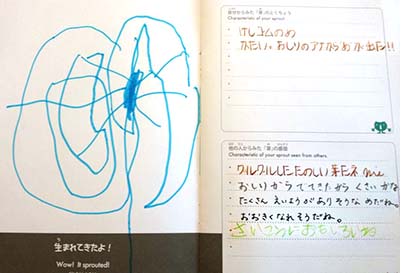 生まれてきたよ！
Wow! It sprouted!
自分からみた「芽」のとくちょう
Characteristic of your sprout
けしゴムのめ
かたい、おしりのアナからめが出た!!
他の人からみた「芽」の感想
Characteristic of your sprout seen from others.
グルグルしたたのしい芽だネ
おしりからでてきたから くさいかな
たくさん えいようがありそうなめだね。
おおきくなれそうだね。
さいこうにおもしろいね